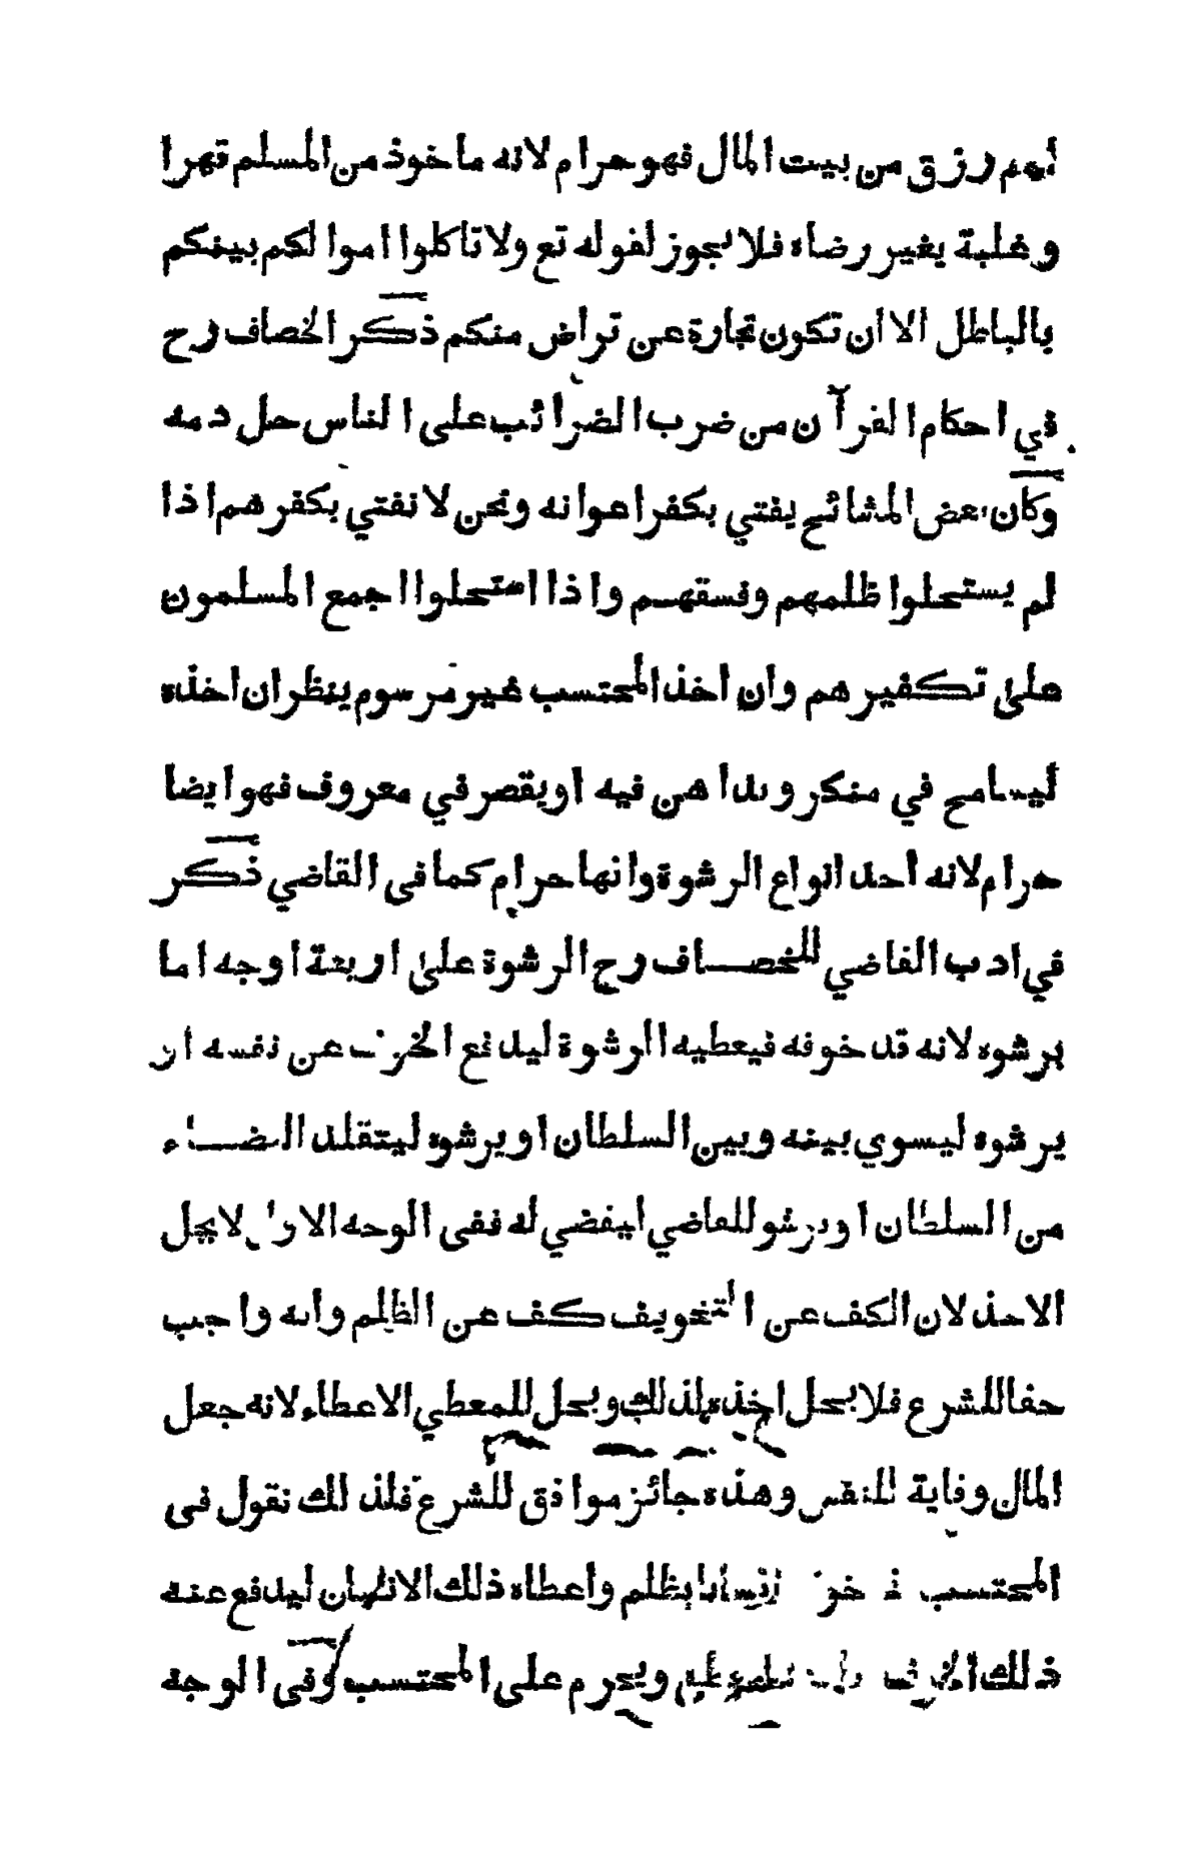 لهم رزق من بيت المال فهو حرام لانه ماخوذ من المسلم قهرا
وغلبة بغير رضاه فلا يجوز لقوله تع ولا تاكلوا اموالكم بينكم
بالباطل الا ان تكون تجارة عن تراض منكم ذكر الخصاف رح
في احكام القرآن من ضرب الضرائب على الناس حل دمه
وكان بعض المشائخ يفتي بكفر اعوانه ونحن لا نفتي بكفرهم اذا
لم يستحلوا ظلمهم وفسقهم واذا استحلوا اجمع المسلمون
على تكفيرهم وان اخذ المحتسب غير مرسوم ينظر ان اخذه
ليسامح في منكر ويداهن فيه او يقصر في معروف فهو ايضا
حرام لانه احد انواع الرشوة وانها حرام كما فى القاضي ذكر
في ادب القاضي للخصاف رح الرشوة على اربعة اوجه اما
يرشوه لانه قد خوفه فيعطيه الرشوة ليدفع الخوف عن نفسه او
يرشوه ليسوي بينه وبين السلطان او يرشوه ليتقلد القضاء
من السلطان او يرشو للقاضي ليقضي له ففى الوجه الاول لا يحل
الاخذ لان الكف عن التخويف كف عن الظلم وانه واجب
حقا للشرع فلا يحل اخذه لذلك ويحل للمعطي الاعطاء لانه جعل
المال وقاية للنفس وهذه جائز موافق للشرع فلذلك نقول فى
المحتسب خوف انسانا بظلم واعطاه ذلك الانسان ليدفع عنه
ذلك الخوف ويحرم على المحتسب وفى الوجه